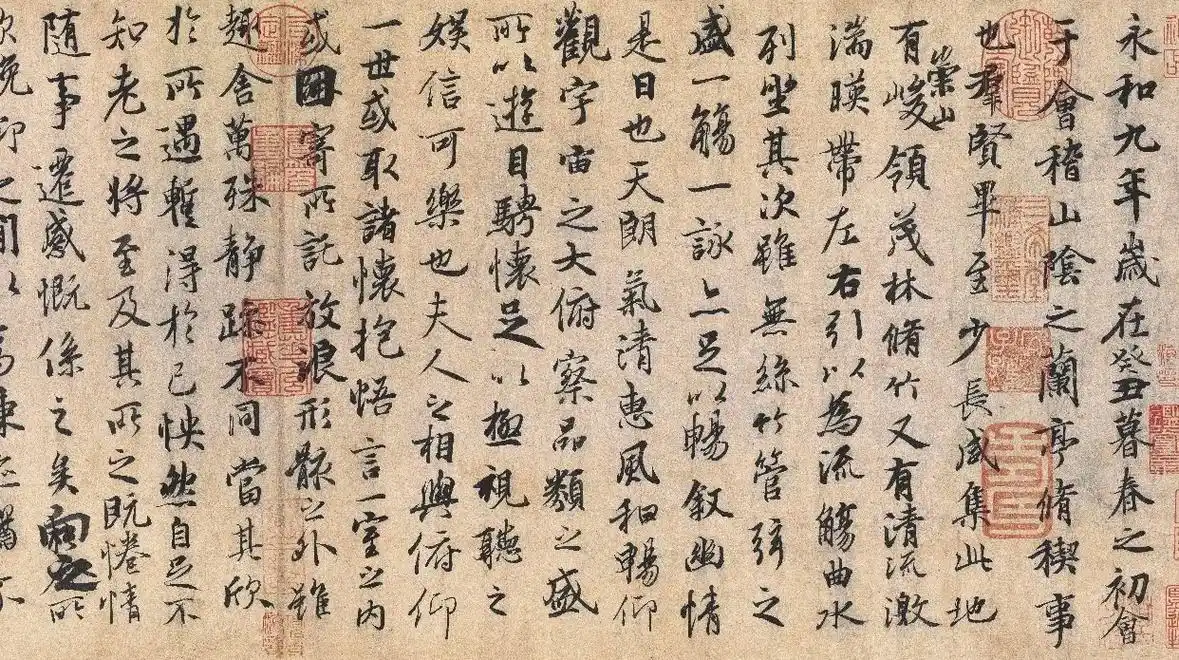 永和九年歲在癸丑暮春之初會
于會稽山陰之蘭亭脩稧事
也羣賢畢至少長咸集此地
有崇山峻領茂林脩竹又有清流激
湍暎帶左右引以為流觴曲水
列坐其次雖無絲竹管弦之
盛一觴一詠亦足以暢敘幽情
是日也天朗氣清惠風和暢仰
觀宇宙之大俯察品類之盛
所以遊目騁懷足以極視聽之
娛信可樂也夫人之相與俯仰
一世或取諸懷抱悟言一室之內
或因寄所託放浪形骸之外雖
趣舍萬殊靜躁不同當其欣
於所遇暫得於己怏然自足不
知老之將至及其所之既惓情
隨事遷感慨係之矣向之所
欣俛仰之間以為陳迹猶不